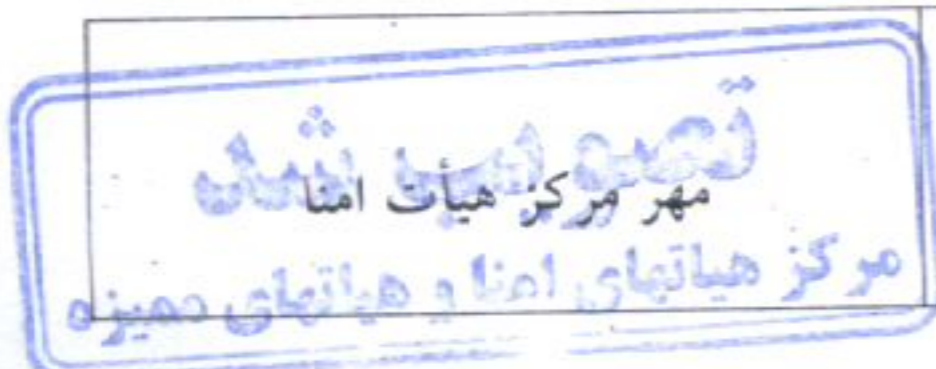 تصویب شد
مهر مرکز هیأت امنا
مرکز هیاتهای امنا و هیاتهای ممیزه